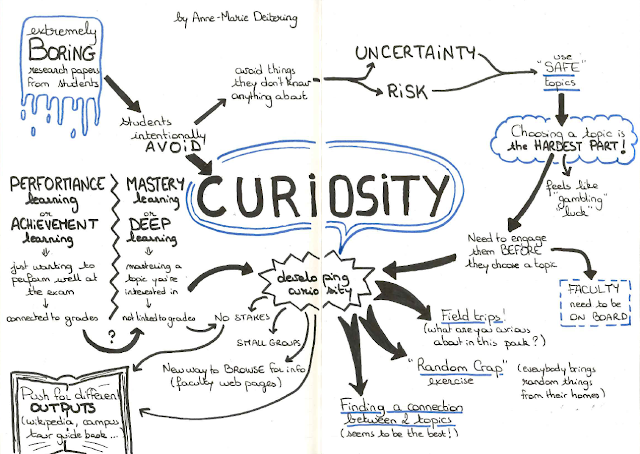 by Anne-Marie Deitering
extremely
BORING
research papers
from students
students
intentionally
AVOID
avoid things
they don't know
anything about
UNCERTAINTY
RISK
use
"SAFE"
topics
Choosing a topic is
the HARDEST PART!
feels like
"gambling"
"luck"
Need to engage
them BEFORE
they choose a topic
FACULTY
need to be
ON BOARD
CURIOSITY
PERFORMANCE
learning
or
ACHIEVEMENT
learning
just wanting to
perform well at
the exam
connected to grades
?
MASTERY
learning
or
DEEP
learning
mastering a
topic you're
interested in
not linked to grades
developing
curiosity
NO STAKES
SMALL GROUPS
New way to BROWSE for info
(faculty web pages)
Push for different
OUTPUTS
(wikipedia, campus
tour guide book ...
Field trips!
(what are you curious
about in this park?)
"Random Crap"
exercise
(everybody brings
random things
from their homes)
Finding a connection
between 2 topics
(seems to be the best!)